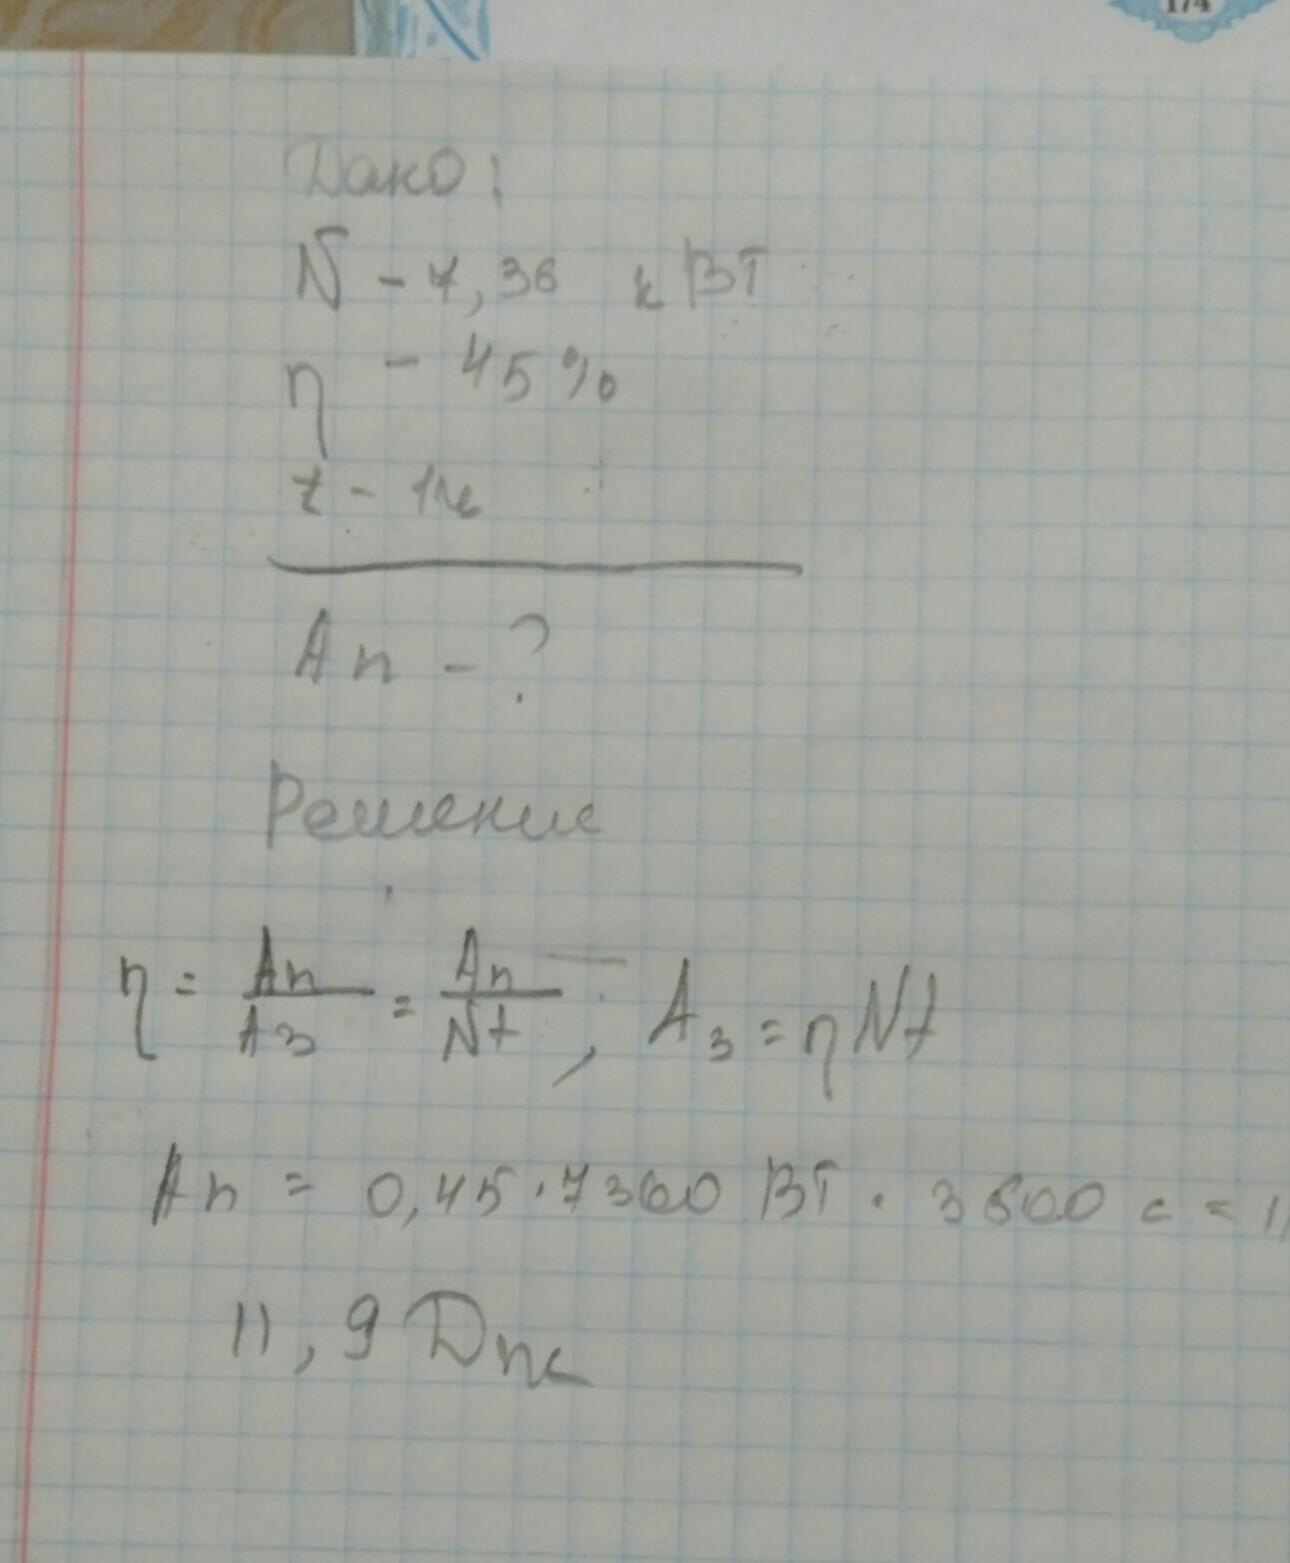 174
Дано:
N - 7,36 кВт
η - 45%
t - 1ч
Ап - ?
Решение
η = Ап/Аз = Ап/Nt , Аз = ηNt
Ап = 0,45 · 7360 Вт · 3600 с = 11
11,9 Дж